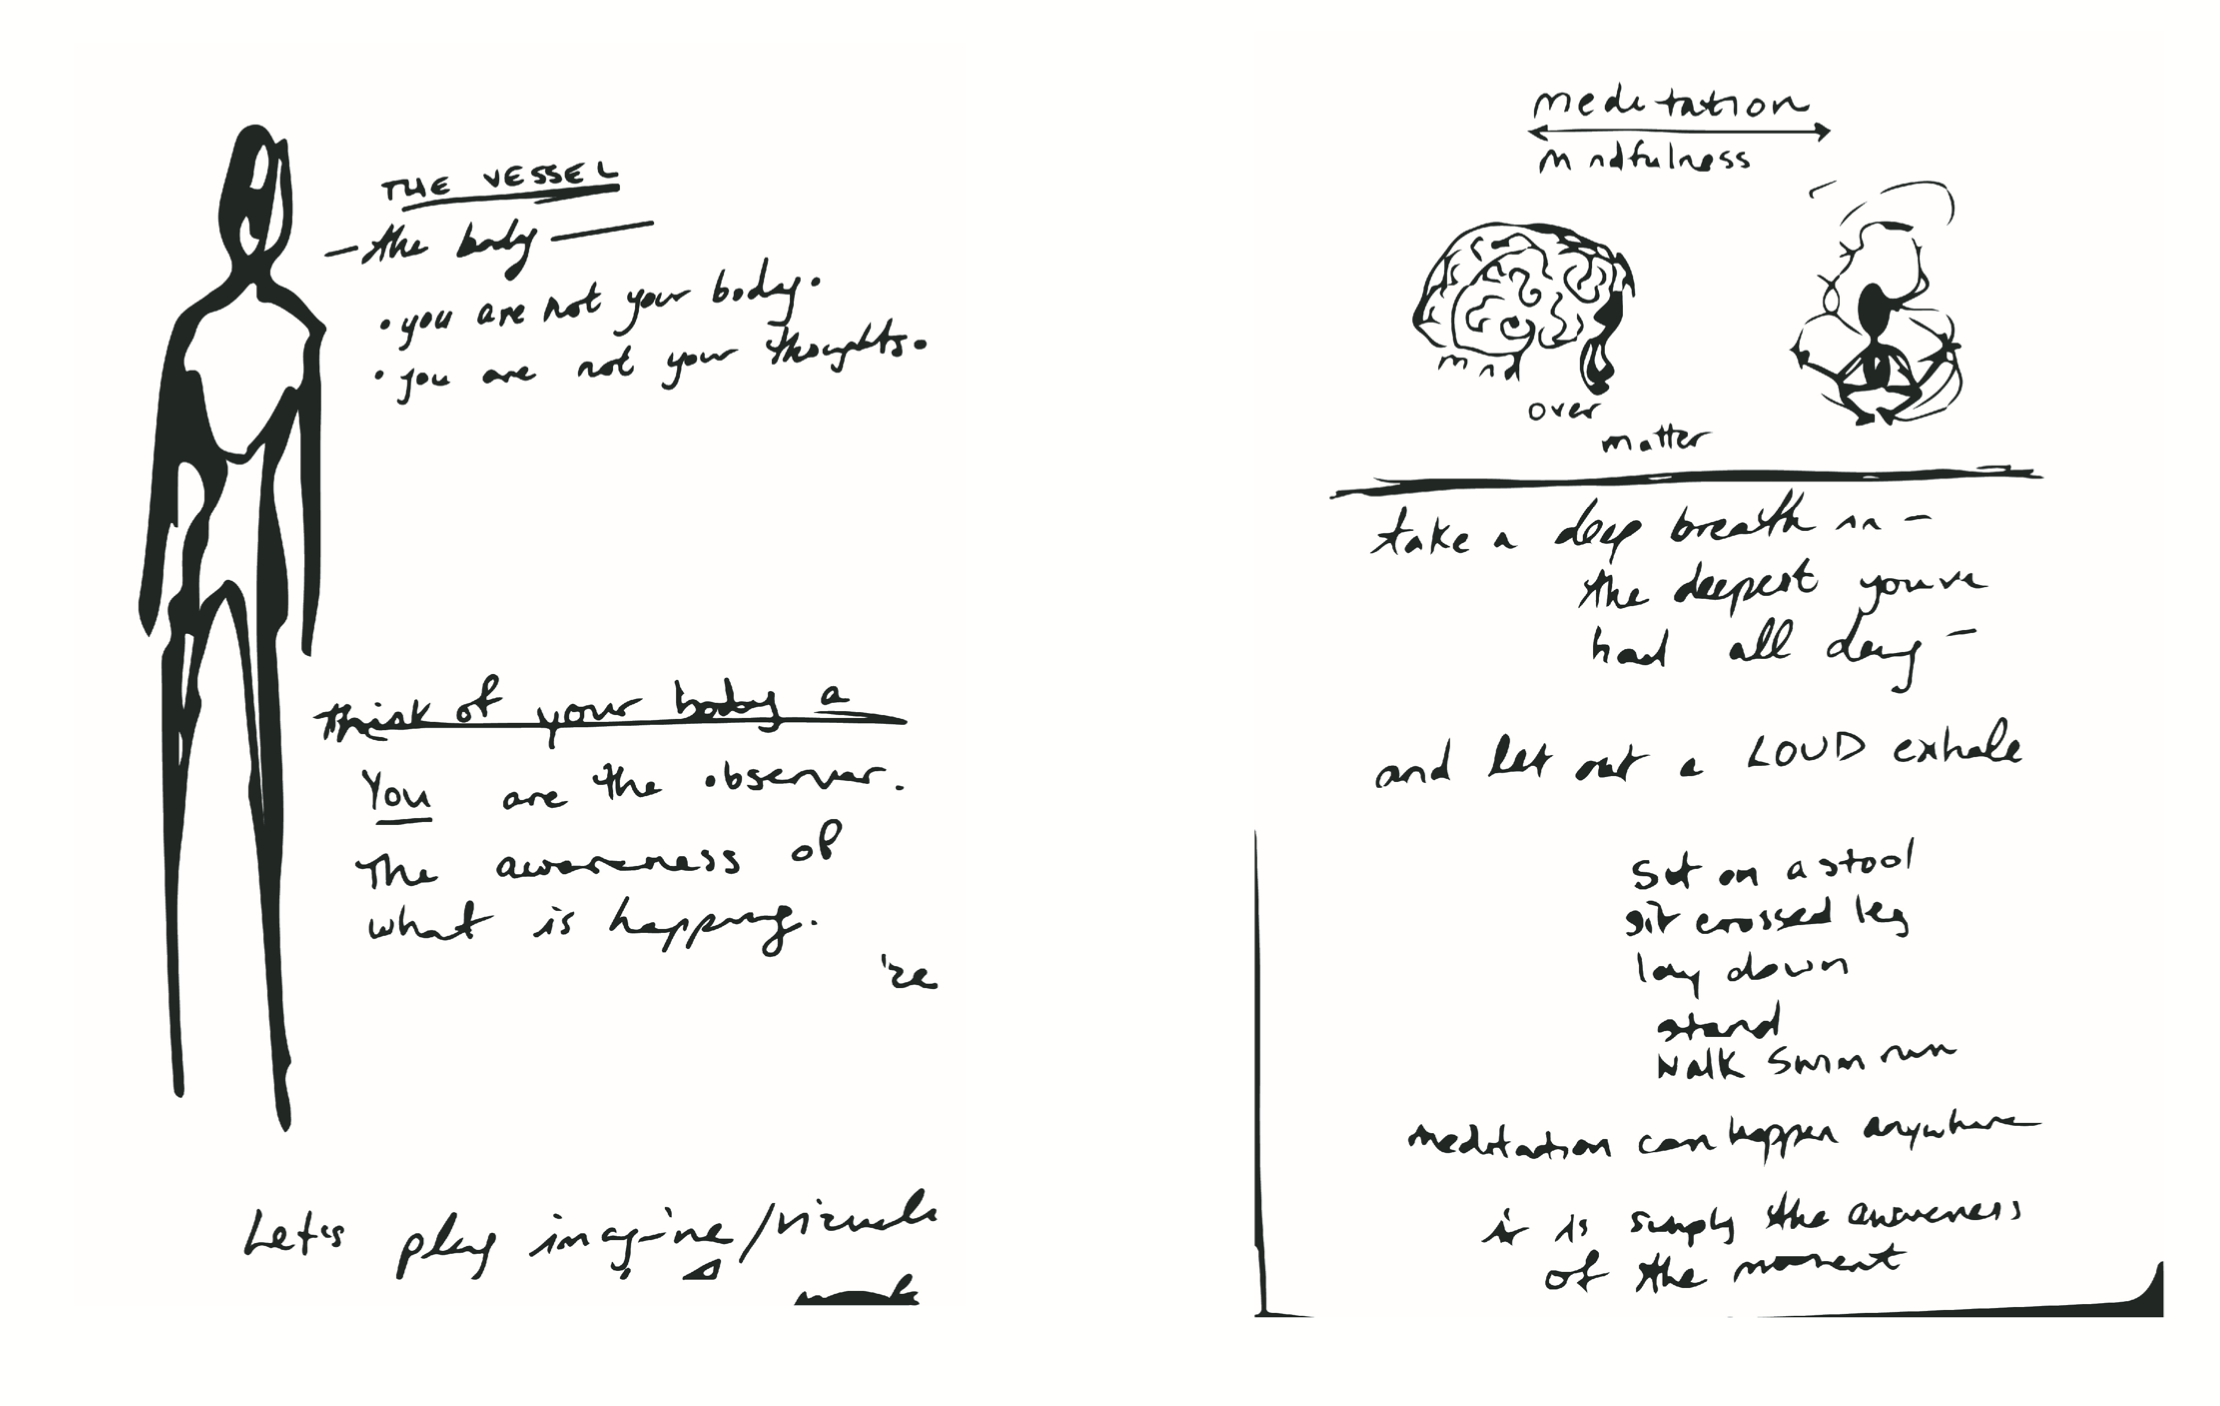 THE VESSEL
- the body -
• you are not your body.
• you are not your thoughts.
think of your body a
You are the observer.
The awareness of
what is happing.
're
Let's play imagine/
meditation
mindfulness
mind
over
matter
take a deep breath in -
the deepest youve
had all day -
and let out a LOUD exhale
Sit on a stool
sit crossed leg
lay down
stand
Walk Swim run
meditation can happen anywhere
it is simply the awareness
of the moment